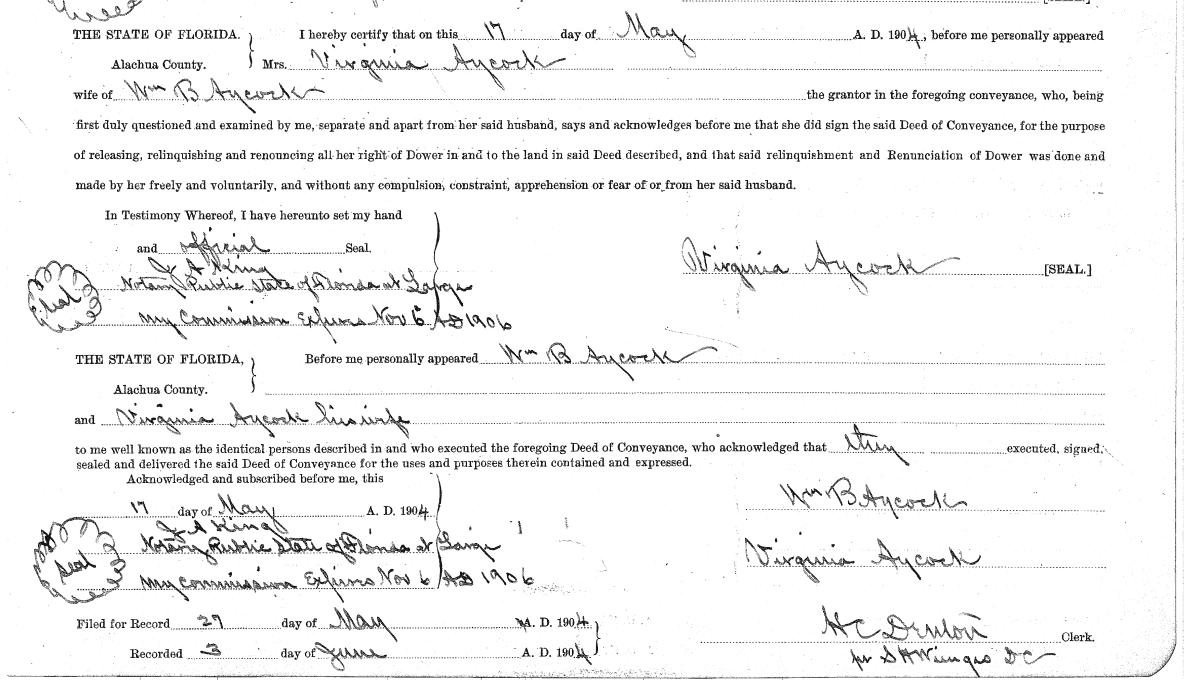 [SEAL.]
three
THE STATE OF FLORIDA. I hereby certify that on this 17 day of May A. D. 1904, before me personally appeared
Alachua County. Mrs. Virginia Aycock
wife of Wm B Aycock the grantor in the foregoing conveyance, who, being
first duly questioned and examined by me, separate and apart from her said husband, says and acknowledges before me that she did sign the said Deed of Conveyance, for the purpose
of releasing, relinquishing and renouncing all her right of Dower in and to the land in said Deed described, and that said relinquishment and Renunciation of Dower was done and
made by her freely and voluntarily, and without any compulsion, constraint, apprehension or fear of or from her said husband.
In Testimony Whereof, I have hereunto set my hand
and official Seal.
J A King
Virginia Aycock [SEAL.]
Notary Public State of Florida at Large
Seal
My Commission Expires Nov 6 AD 1906
THE STATE OF FLORIDA, Before me personally appeared Wm B Aycock
Alachua County.
and Virginia Aycock his wife
to me well known as the identical persons described in and who executed the foregoing Deed of Conveyance, who acknowledged that they executed, signed,
sealed and delivered the said Deed of Conveyance for the uses and purposes therein contained and expressed.
Acknowledged and subscribed before me, this
Wm B Aycock
17 day of May A. D. 1904
J A King
Notary Public State of Florida at Large
Virginia Aycock
Seal
My Commission Expires Nov 6 AD 1906
Filed for Record 27 day of May A. D. 1904
H C Denton Clerk.
Recorded 3 day of June A. D. 1904
per S H Wienges DC